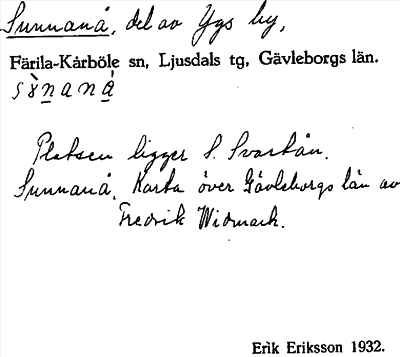 Sunnanå, del av Ygs by,
Färila-Kårböle sn, Ljusdals tg, Gävleborgs län.
Platsen ligger S. Svartån.
Sunnanå, Karta över Gävleborgs län av
Fredrik Widmark.
Erik Eriksson 1932.